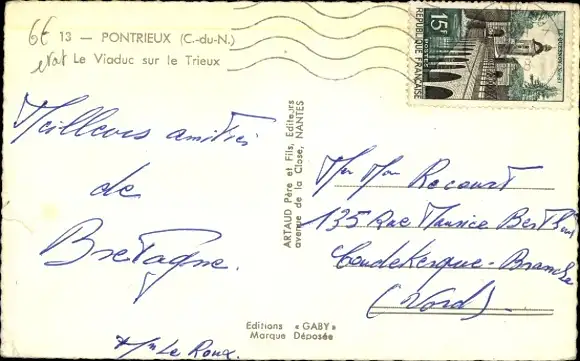 6E 13 — PONTRIEUX (C.-du-N.)
Le Viaduc sur le Trieux
Meilleures amitiés
de
Bretagne.
Mm Le Roux.
ARTAUD Père et Fils, Editeurs
avenue de la Close, NANTES
Editions « GABY »
Marque Déposée
15F
POSTES
REPUBLIQUE FRANÇAISE
LE QUESNOY
Mr Mme Recourt
135 Rue Maurice Berthaux
Coudekerque-Branche
(Nord)